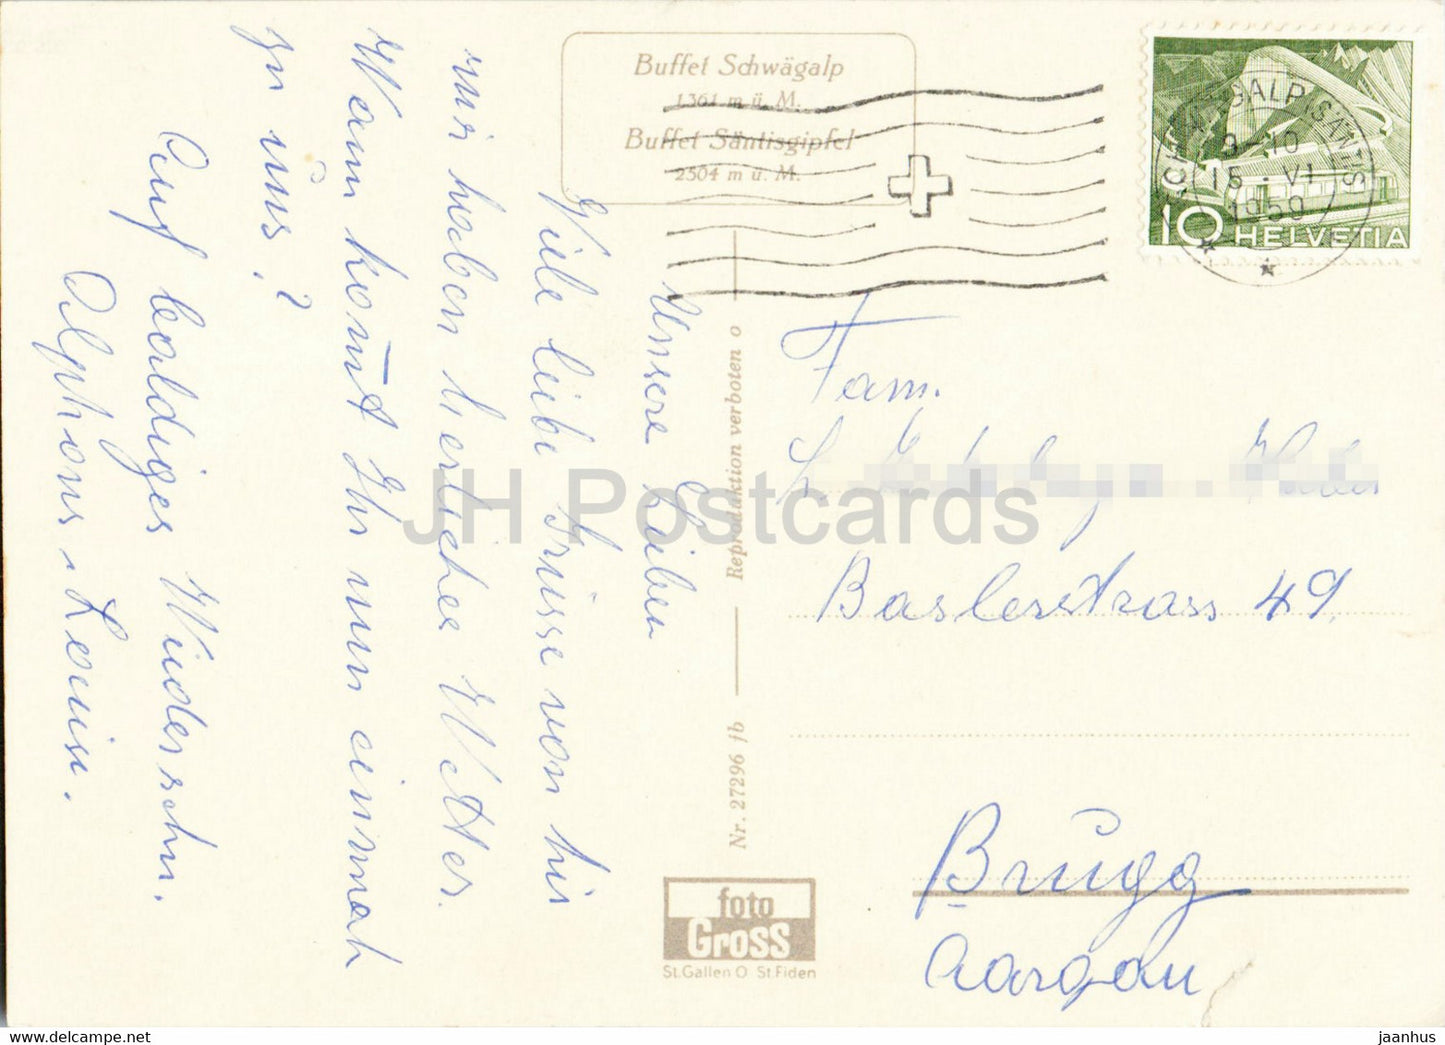 Buffet Schwägalp
1361 m ü. M.
Buffet Säntisgipfel
2504 m ü. M.
SCHWÄGALP (SÄNTIS)
9-10
15. VI
1959
10 HELVETIA
Unsere Lieben
Viele liebe Grüsse von hir
wir haben herliches Wetter.
Wann kom̄t Ihr nun einmal
zu uns?
Auf baldiges Wiedersehn.
Alphons u Louise.
Nr. 27296 fb
Reproduktion verboten o
Fam.
Baslerstrass 49
Brugg
Aargau
foto
Gross
St.Gallen O St.Fiden
JH Postcards
https://www.delcampe.net
jaanhus